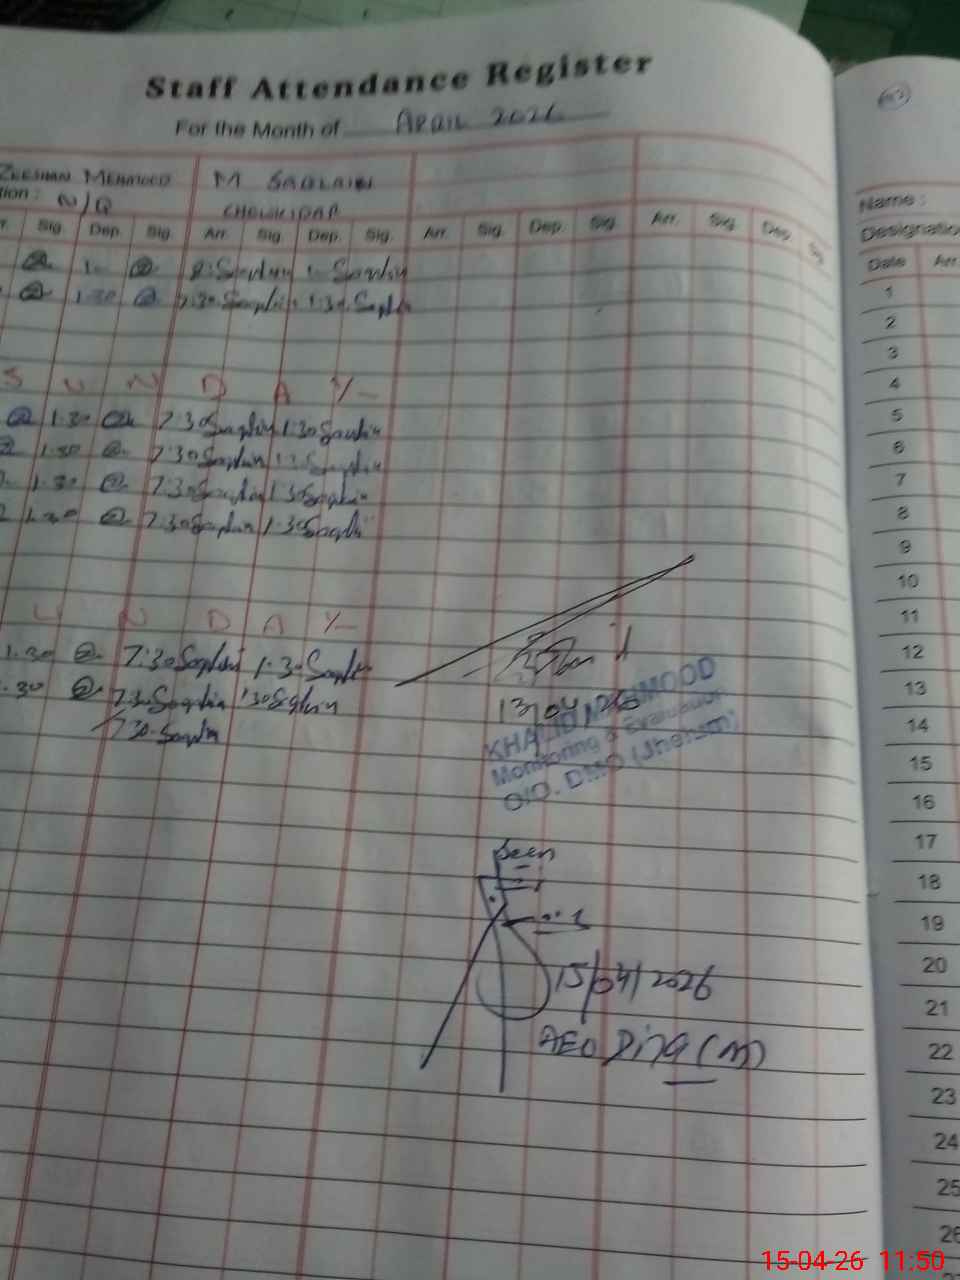 Staff Attendance Register
For the Month of April 2026
ZEESHAN MEHMOOD M SAQLAIN
tion: N/Q CHOWKIDAR
Sig. Dep. Sig. Arr. Sig. Dep. Sig. Arr. Sig. Dep. Sig. Arr. Sig. Dep. Sig.
1- 8: Saqlain 1- Saqlain
1.30 7:30 Saqlain 1:30 Saqlain
S U N D A Y
1.30 7:30 Saqlain 1:30 Saqlain
1.30 7:30 Saqlain 1:3 Saqlain
1.30 7:30 Saqlain 1:30 Saqlain
1.30 7:30 Saqlain 1:30 Saqlain
U N D A Y
1.30 7:30 Saqlain 1:30 Saqlain
.30 7:30 Saqlain 1:30 Saqlain
7:30 Saqlain
13/04/26
KHALID MEHMOOD
Monitoring & Evaluation
O/O. DMO (Jhelum)
Seen
15/04/2026
AEO Dina (M)
Name :
Designatio
Date Arr.
1
2
3
4
5
6
7
8
9
10
11
12
13
14
15
16
17
18
19
20
21
22
23
24
25
26
15-04-26 11:50